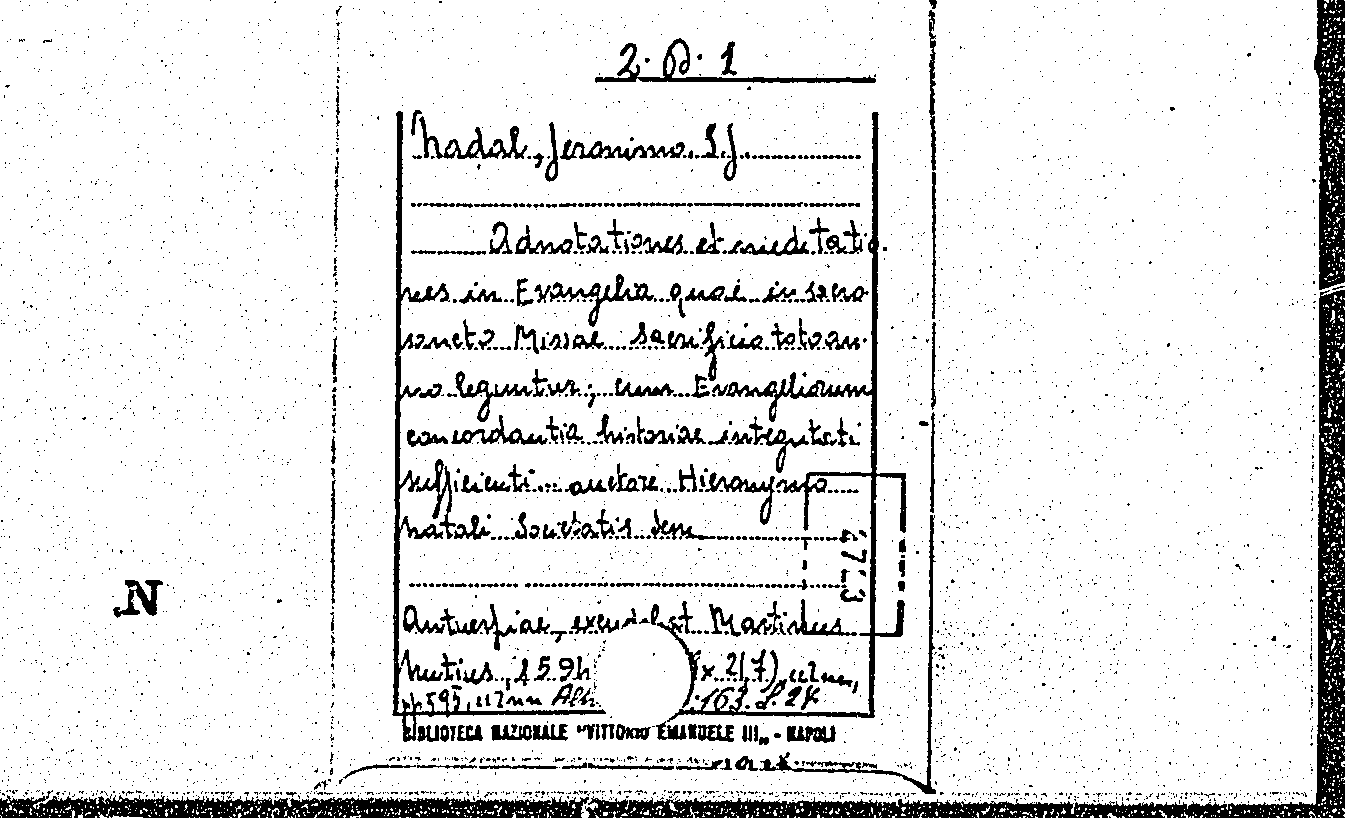 2. D. 1
Nadal, Jeronimo. S. J.
Adnotationes et meditatio.
nes in Evangelia quae in sacro
sancto Missae sacrificio toto an-
no leguntur; cum Evangeliorum
concordantia historiae integritati
sufficienti... auctore Hieronymo
natali Societatis Iem
4763
Antuerpiae, excudebat Martinus
Nutius, 1594 (x 217), cc2nn,
pp.595, cc7nn 163. L. 24
N
BIBLIOTECA NAZIONALE "VITTORIO EMANUELE III„ - NAPOLI